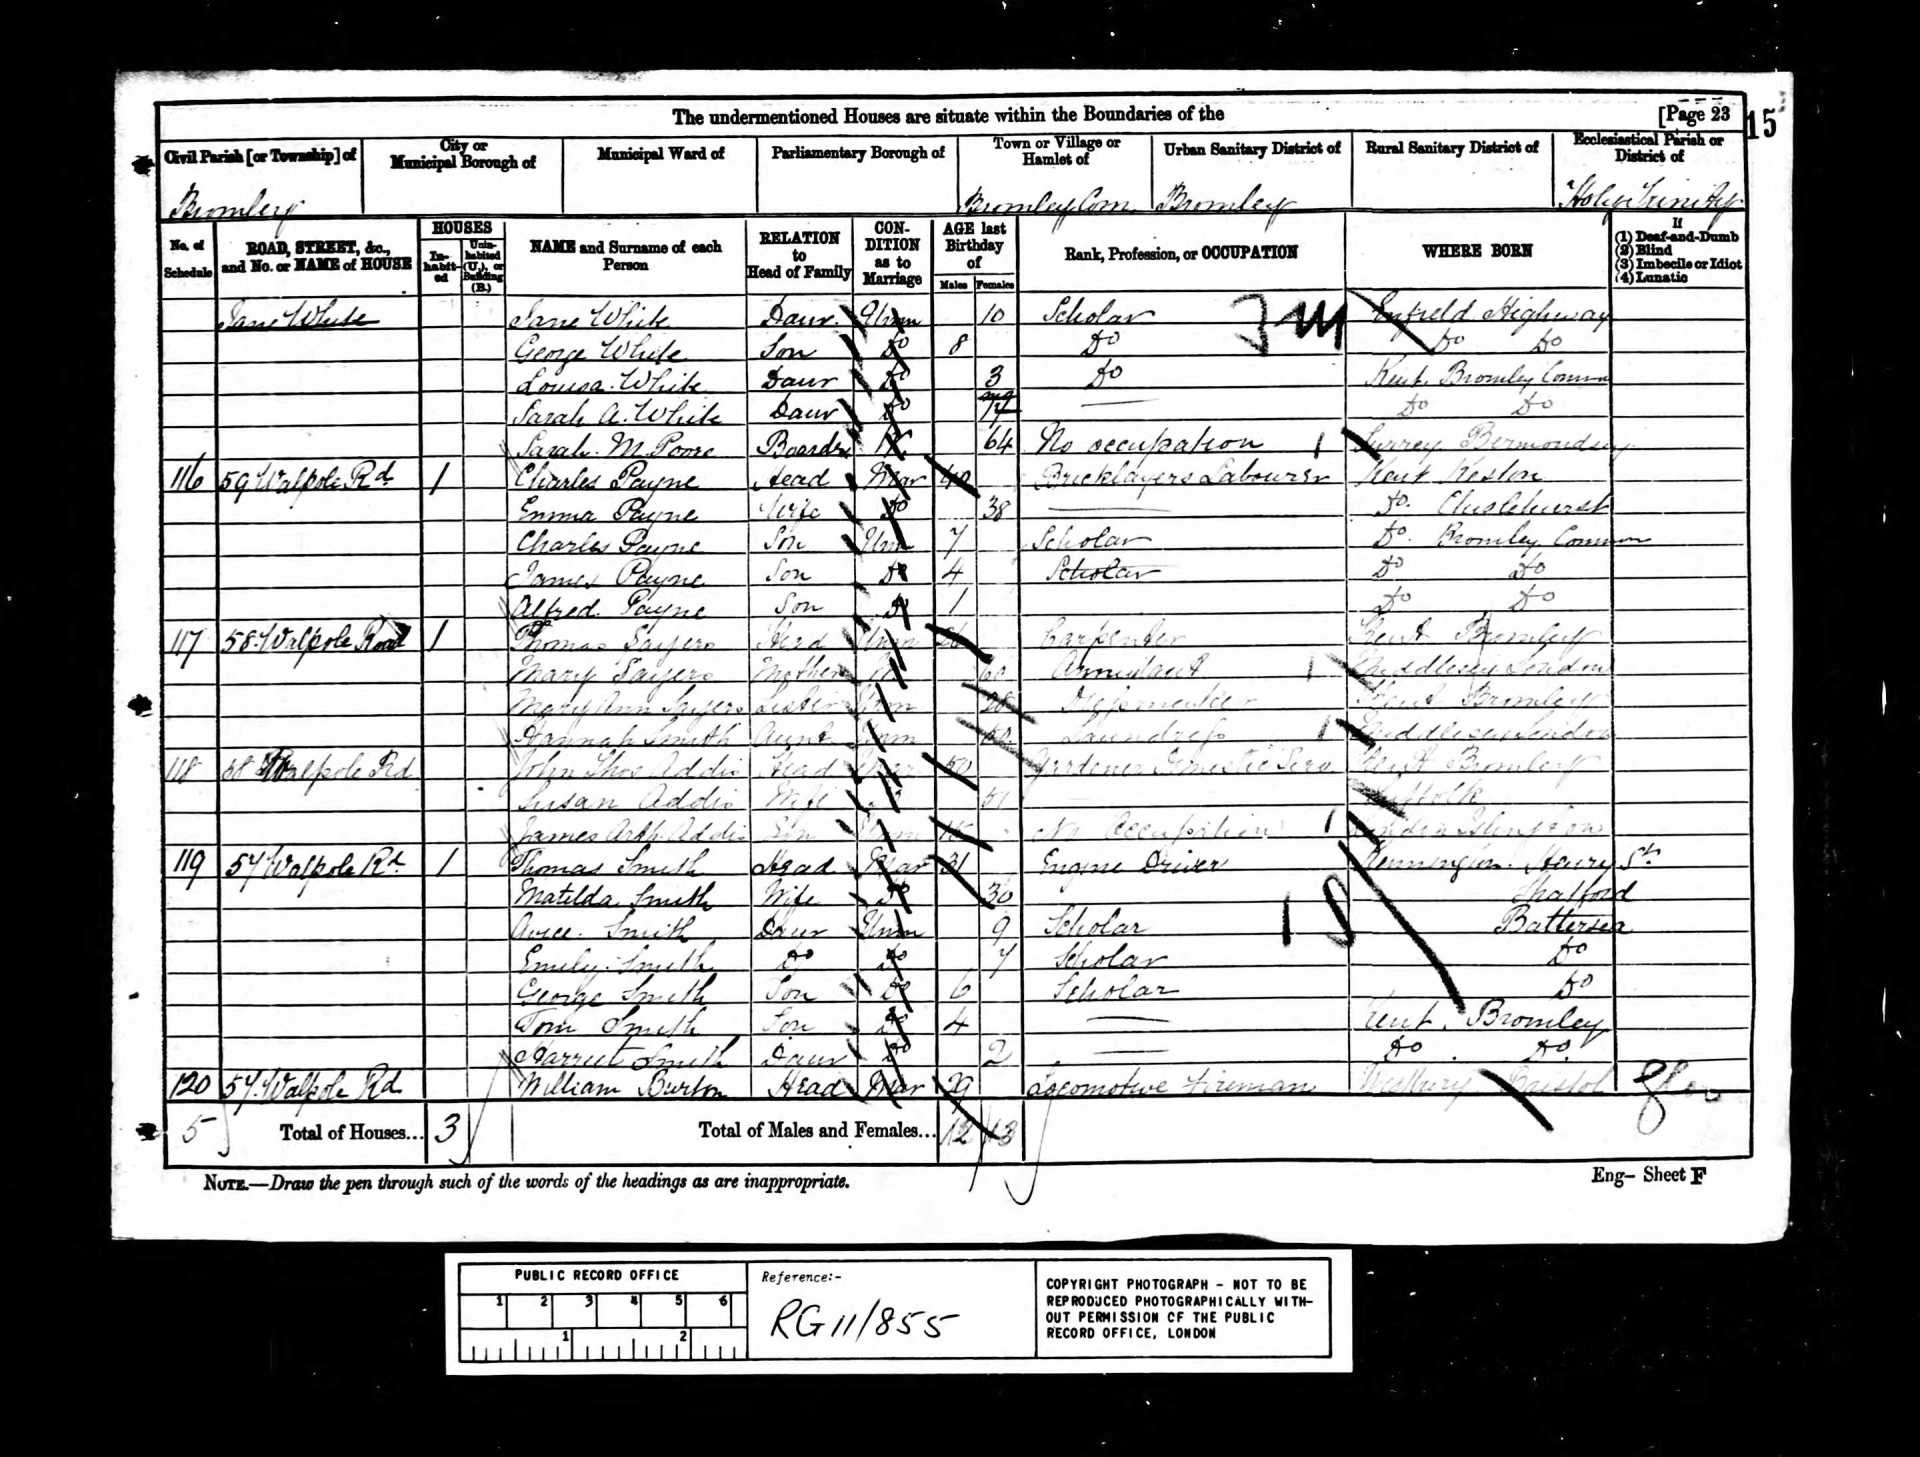 The undermentioned Houses are situate within the Boundaries of the [Page 23
15
Civil Parish [or Township] of City or Municipal Borough of Municipal Ward of Parliamentary Borough of Town or Village or Hamlet of Urban Sanitary District of Rural Sanitary District of Ecclesiastical Parish or District of
Bromley Bromley Com. Bromley Holy Trinity
No. of Schedule ROAD, STREET, &c., and No. or NAME of HOUSE HOUSES In-habit-ed Unin-habited (U.), or Building (B.) NAME and Surname of each Person RELATION to Head of Family CON-DITION as to Marriage AGE last Birthday of Males Females Rank, Profession, or OCCUPATION WHERE BORN If (1) Deaf-and-Dumb (2) Blind (3) Imbecile or Idiot (4) Lunatic
Jane White Jane White Daur. Unm 10 Scholar Enfield Highway
George White Son Do 8 Do Do Do
Louisa White Daur Do 3 Do Kent. Bromley Common
Sarah A. White Daur Do Do Do
Sarah M. Boarder 64 No occupation 1 Surrey Bermondsey
116 59 Walpole Rd 1 Charles Payne Head Mar 40 Bricklayers Labourer Kent Keston
Emma Payne Wife Do 38 Do. Chislehurst
Charles Payne Son Unm 7 Scholar Do. Bromley Common
James Payne Son Do 4 Scholar Do Do
Alfred Payne Son Do 1 Do Do
117 58 Walpole Road 1 Thomas Sayers Head Unm Carpenter Kent Bromley
Mary Sayers Mother Annuitant 1 Middlesex London
Mary Ann Sayers Sister Unm 28 Kent Bromley
Hannah Smith Aunt Unm Laundress 1 Middlesex London
118 58 Walpole Rd John Thos Addis Head Mar 50 Gardener Domestic Serv Kent Bromley
Susan Addis Wife 51 Suffolk
James Arth. Addis Son Unm No Occupation 1 London Islington
119 57 Walpole Rd. 1 Thomas Smith Head Mar 31 Engine Driver Kennington. Henry St.
Matilda Smith Wife Do 30
Avice. Smith Daur Unm 9 Scholar Battersea
Emily. Smith Do Do 7 Scholar Do
George Smith Son Do 6 Scholar Do
Tom Smith Son Do 4 Kent. Bromley
Harriet Smith Daur Do 2 Do. Do.
120 57. Walpole Rd William Burton Head Mar 29 Locomotive Fireman Westbury Bristol
5 Total of Houses... 3 Total of Males and Females... 12 13
NOTE.—Draw the pen through such of the words of the headings as are inappropriate. Eng— Sheet F
PUBLIC RECORD OFFICE
1 2 3 4 5 6
1 2
Reference:-
RG 11/855
COPYRIGHT PHOTOGRAPH - NOT TO BE
REPRODUCED PHOTOGRAPHICALLY WITH-
OUT PERMISSION OF THE PUBLIC
RECORD OFFICE, LONDON